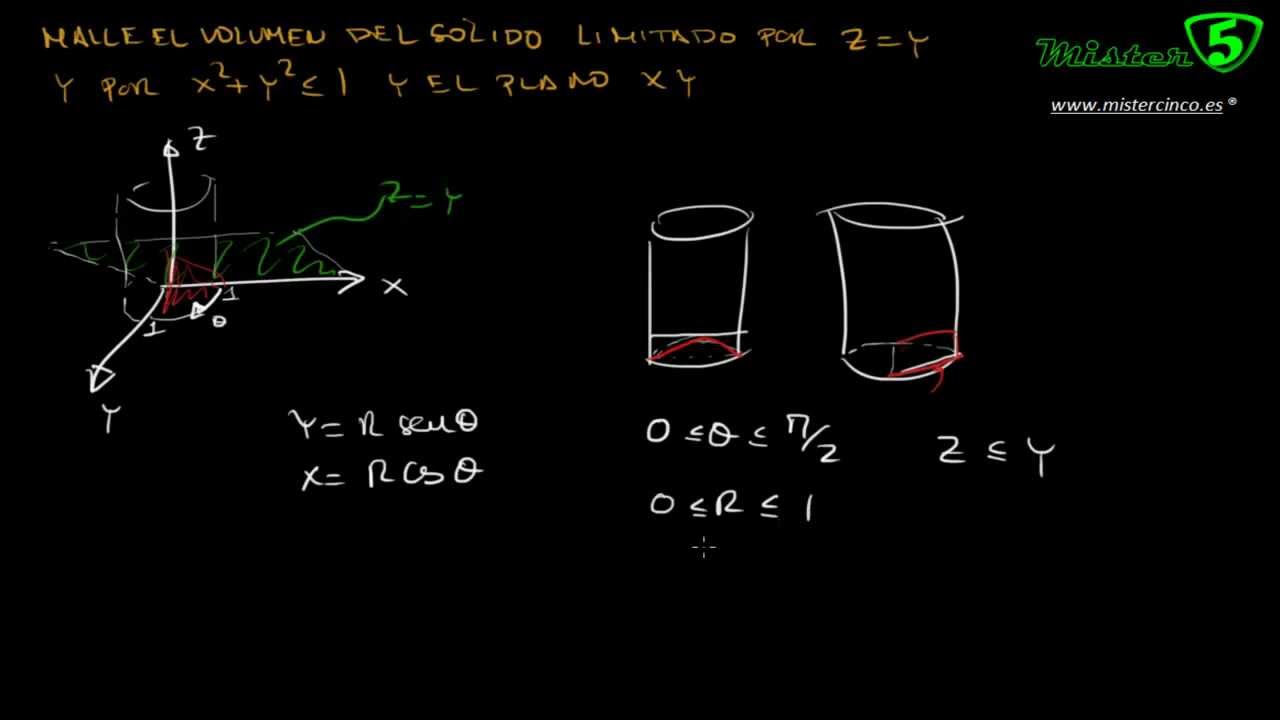 MALLE EL VOLUMEN DEL SOLIDO LIMITADO POR Z = Y
Y POR X² + Y² ≤ 1 Y EL PLANO XY
Mister 5
www.mistercinco.es ®
Z
Z = Y
X
1
1
θ
Y
Y = R senθ
X = R cosθ
0 ≤ θ ≤ π/2
Z ≤ Y
0 ≤ R ≤ 1